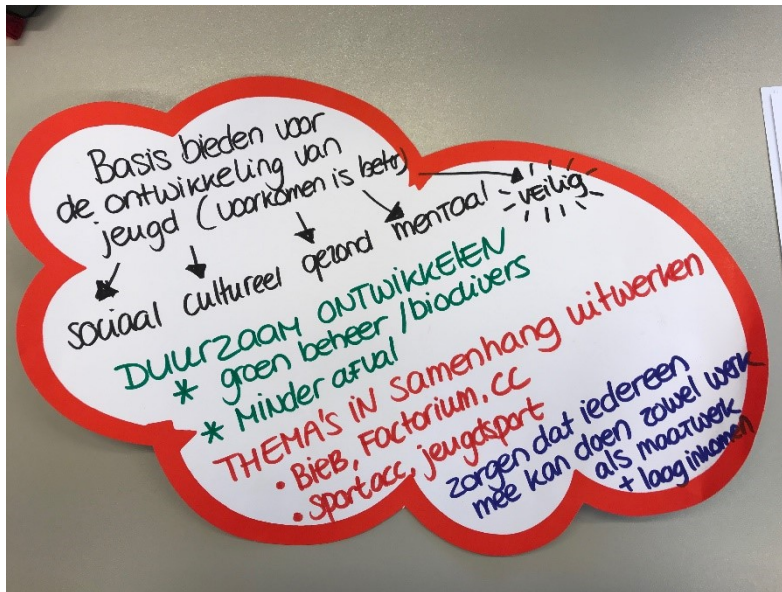 Basis bieden voor
de ontwikkeling van
jeugd (voorkomen is beter)
sociaal cultureel gezond mentaal veilig
DUURZAAM ONTWIKKELEN
* groen beheer / biodivers
* Minder afval
THEMA'S IN samenhang uitwerken
• BieB, Factorium, CC
• sportacc, jeugdsport
zorgen dat iedereen
mee kan doen zowel werk
als maatwerk
+ laag inkomen